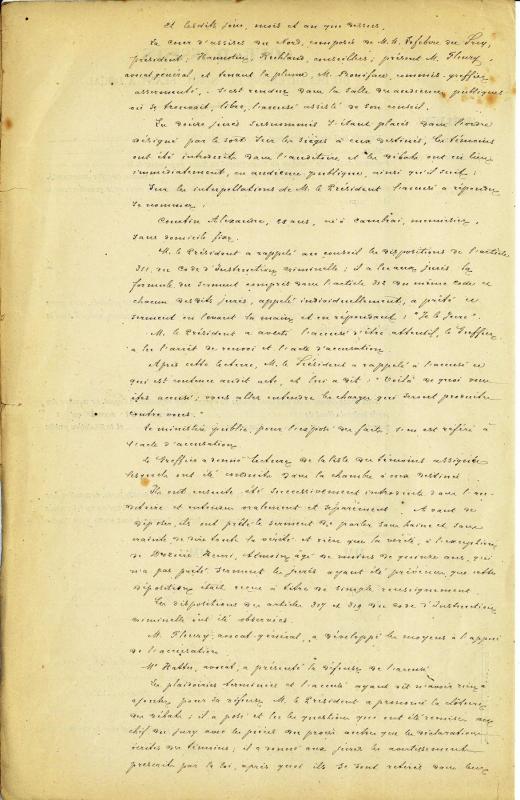 Et lesdits jour, mois et an que dessus,
La cour d'assises du Nord, composée de M.M. Lefebvre du Prey,
président; Hannotin, conseillers; présent M. Fleury,
avocat général, et tenant la plume, M. Boniface, commis-greffier
assermenté, s'est rendue dans la salle des audiences publiques
où se trouvait, libre, l'accusé assisté de son conseil.
Les douze jurés susnommés s'étant placés dans l'ordre
désigné par le sort sur les sièges à eux destinés, les témoins
ont été introduits dans l'auditoire, et les débats ont eu lieu
immédiatement, en audience publique, ainsi qu'il suit:
Sur les interpellations de M. le Président l'accusé a répondu
se nommer:
Alexandre, ans, né à Cambrai, menuisier,
sans domicile fixe.
M. le Président a rappelé au conseil les dispositions de l'article
311 du Code d'Instruction criminelle; il a lu aux jurés la
formule du serment compris dans l'article 312 du même code et
chacun desdits jurés, appelé individuellement, a prêté ce
serment en levant la main et en répondant: "Je le jure".
M. le Président a averti l'accusé d'être attentif, le Greffier
a lu l'arrêt de renvoi et l'acte d'accusation.
Après cette lecture, M. le Président a rappelé à l'accusé ce
qui est contenu audit acte, et lui a dit: "Voilà de quoi vous
êtes accusé; vous allez entendre les charges qui seront produites
contre vous."
Le ministère public, pour l'exposé des faits, s'en est référé à
l'acte d'accusation
Le Greffier a donné lecture de la liste des témoins assignés
lesquels ont été conduits dans la chambre à eux destinée
Ils ont ensuite été successivement introduits dans l'au-
ditoire et entendus oralement et séparément. Avant de
déposer, ils ont prêté le serment de parler sans haine et sans
crainte de dire toute la vérité et rien que la vérité, à l'exception
de Henri, témoin, âgé de moins de quinze ans, qui
n'a pas prêté serment les jurés ayant été prévenus que cette
déposition était reçue à titre de simple renseignement.
Les dispositions des articles 317 et 319 du code d'Instruction
criminelle ont été observées.
M. Fleury, avocat-général, a développé les moyens à l'appui
de l'accusation
Me Hattu, avocat, a présenté la défense de l'accusé
Les plaidoiries terminées et l'accusé ayant dit n'avoir rien à
ajouter pour sa défense M. le Président a prononcé la clôture
des débats; il a posé et lu les questions qui ont été remises au
chef du jury avec les pièces du procès autres que les déclarations
écrites des témoins; il a donné aux jurés les avertissements
prescrits par la loi, après quoi ils se sont retirés dans leur